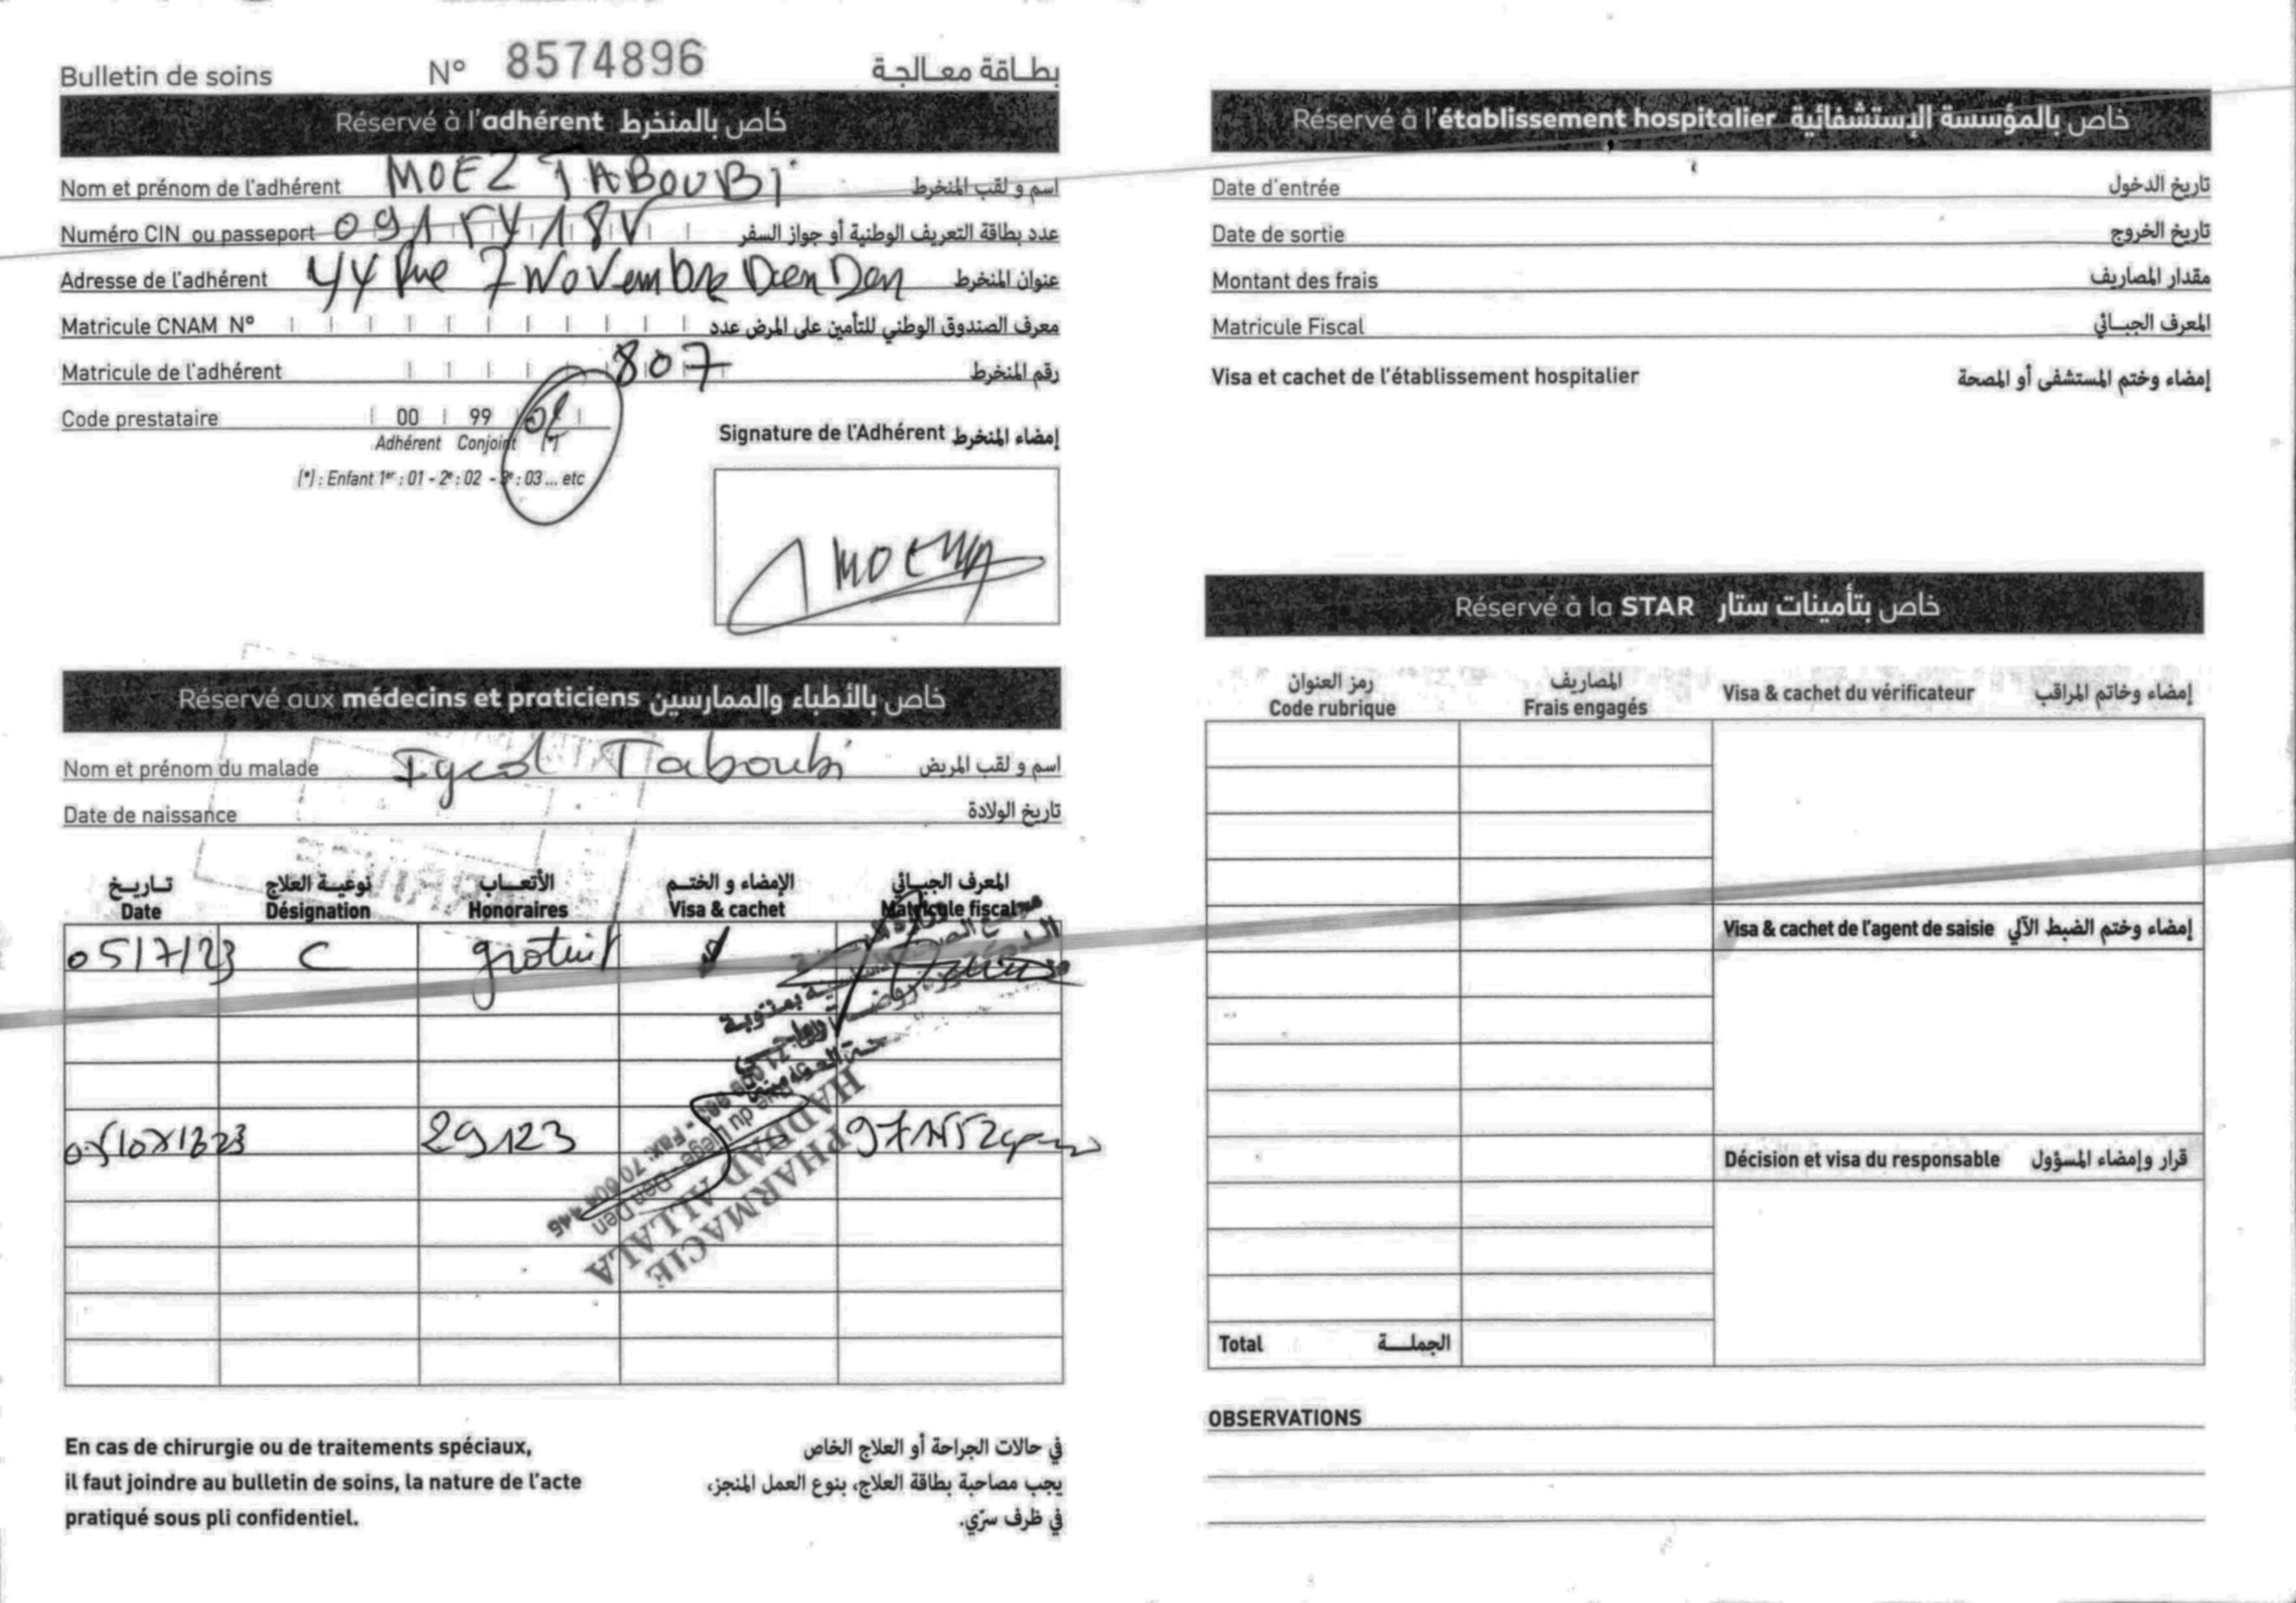 Bulletin de soins N° 8574896 بطاقة معالجة
Réservé à l'adhérent خاص بالمنخرط
Nom et prénom de l'adhérent MOEZ TABOUBI اسم و لقب المنخرط
Numéro CIN ou passeport عدد بطاقة التعريف الوطنية أو جواز السفر
Adresse de l'adhérent 44 Rue 7 Novembre Den Den عنوان المنخرط
Matricule CNAM N° معرف الصندوق الوطني للتأمين على المرض عدد
Matricule de l'adhérent 807 رقم المنخرط
Code prestataire 00 99
Adhérent Conjoint (*)
(*) : Enfant 1er : 01 - 2e : 02 - 3e : 03 ... etc
Signature de l'Adhérent إمضاء المنخرط
Réservé aux médecins et praticiens خاص بالأطباء والممارسين
Nom et prénom du malade Taboubi اسم و لقب المريض
Date de naissance تاريخ الولادة
تاريخ نوعية العلاج الأتعاب الإمضاء و الختم المعرف الجبائي
Date Désignation Honoraires Visa & cachet Matricule fiscal
05/7/23 C gratuit
29,123
PHARMACIE
HADDAD ALLALA
Den Den
En cas de chirurgie ou de traitements spéciaux,
il faut joindre au bulletin de soins, la nature de l'acte
pratiqué sous pli confidentiel.
في حالات الجراحة أو العلاج الخاص
يجب مصاحبة بطاقة العلاج، بنوع العمل المنجز،
في ظرف سرّي.
Réservé à l'établissement hospitalier خاص بالمؤسسة الإستشفائية
Date d'entrée تاريخ الدخول
Date de sortie تاريخ الخروج
Montant des frais مقدار المصاريف
Matricule Fiscal المعرف الجبائي
Visa et cachet de l'établissement hospitalier إمضاء وختم المستشفى أو المصحة
Réservé à la STAR خاص بتأمينات ستار
رمز العنوان المصاريف
Code rubrique Frais engagés Visa & cachet du vérificateur إمضاء وخاتم المراقب
Visa & cachet de l'agent de saisie إمضاء وختم الضبط الآلي
Décision et visa du responsable قرار وإمضاء المسؤول
Total الجملة
OBSERVATIONS